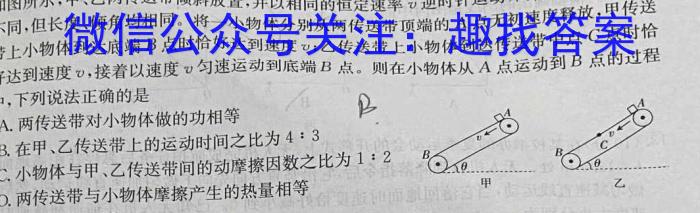 如图所示,甲、乙两传送带倾斜放置,并以相同的恒定速率v逆时针
不同,但长 角均相同。将一小物体分别从两传送带顶端的 无初速度释放,甲传送
带上小物体到达底端B点时恰好达到速度v; 传送带上小物体到达传送带中 C点时恰
好达到速度v,接着以速度v匀速运动到底端B点。则在小物体从A点运动到B点的过程
中,下列说法正确的是
A. 两传送带对小物体做的功相等
B. 在甲、乙传送带上的运动时间之比为4:3
C. 小物体与甲、乙传送带间的动摩擦因数之比为1:2
D. 两传送带与小物体摩擦产生的热量相等
微信公众号关注:趣找答案
B
A
v
B
θ
甲
A
v
C
B
θ
乙